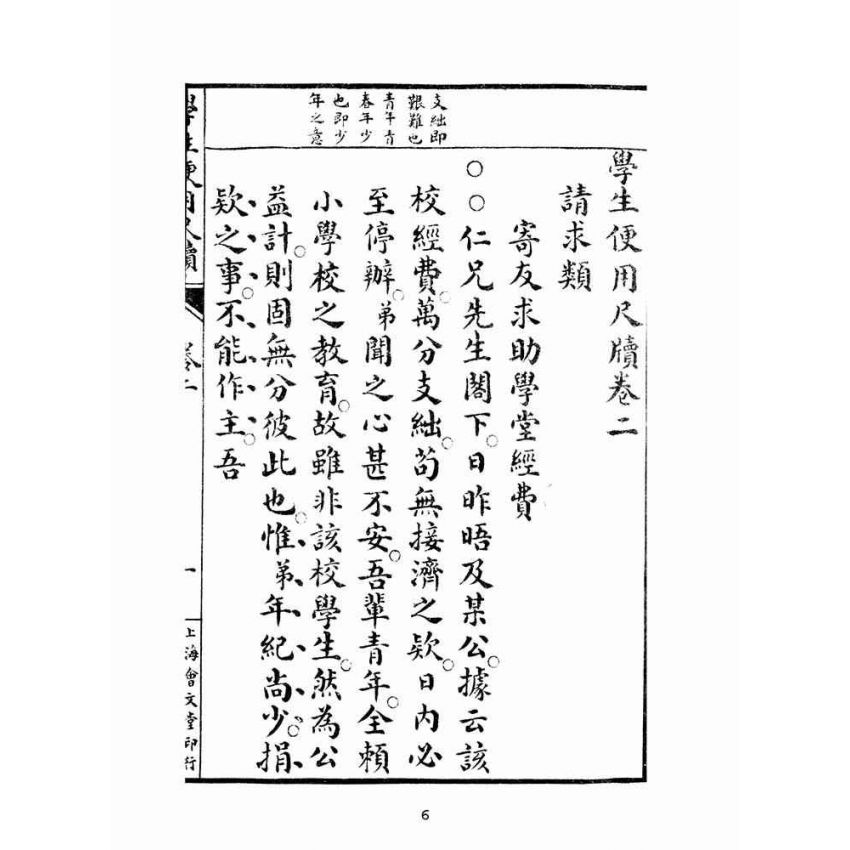 學生便用尺牘卷二
請求類
寄友求助學堂經費
○○仁兄先生閣下。日昨晤及某公。據云該
校經費。萬分支絀。茍無接濟之欵。日內必
至停辦。弟聞之心甚不安。吾輩青年。全賴
小學校之教育。故雖非該校學生。然為公
益計。則固無分彼此也。惟、弟、年、紀、尚、少。捐、
欵、之、事。不、能、作、主。吾
支絀即
艱難也
青年青
春年少
也即少
年之意
學生便用尺牘
卷二
一
上海會文堂印行
6